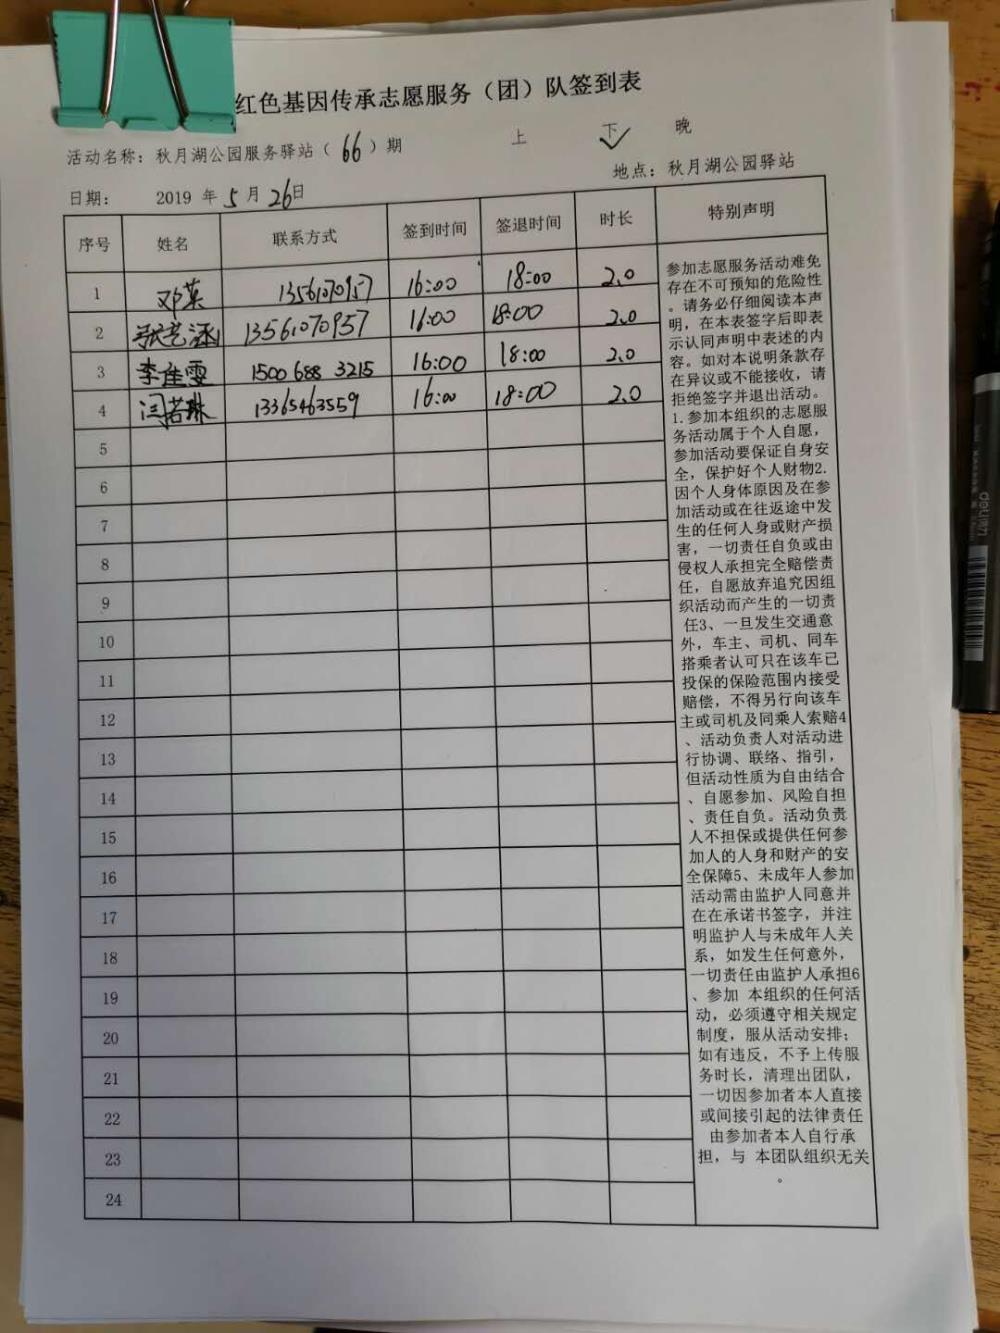 红色基因传承志愿服务（团）队签到表
活动名称：秋月湖公园服务驿站（66）期 上 下 晚
日期： 2019 年 5 月 26日 地点：秋月湖公园驿站
序号 姓名 联系方式 签到时间 签退时间 时长 特别声明
1 邓英 13561070957 16:00 18:00 2.0
2 张艺涵 13561070957 16:00 18:00 2.0
3 李佳雯 1500688 3215 16:00 18:00 2.0
4 闫若琳 13365463559 16:00 18:00 2.0
5
6
7
8
9
10
11
12
13
14
15
16
17
18
19
20
21
22
23
24
参加志愿服务活动难免
存在不可预知的危险性
。请务必仔细阅读本声
明，在本表签字后即表
示认同声明中表述的内
容。如对本说明条款存
在异议或不能接收，请
拒绝签字并退出活动。
1.参加本组织的志愿服
务活动属于个人自愿，
参加活动要保证自身安
全，保护好个人财物2.
因个人身体原因及在参
加活动或在往返途中发
生的任何人身或财产损
害，一切责任自负或由
侵权人承担完全赔偿责
任，自愿放弃追究因组
织活动而产生的一切责
任3、一旦发生交通意
外，车主、司机、同车
搭乘者认可只在该车已
投保的保险范围内接受
赔偿，不得另行向该车
主或司机及同乘人索赔4
、活动负责人对活动进
行协调、联络、指引，
但活动性质为自由结合
、自愿参加、风险自担
、责任自负。活动负责
人不担保或提供任何参
加人的人身和财产的安
全保障5、未成年人参加
活动需由监护人同意并
在在承诺书签字，并注
明监护人与未成年人关
系，如发生任何意外，
一切责任由监护人承担6
、参加 本组织的任何活
动，必须遵守相关规定
制度，服从活动安排；
如有违反，不予上传服
务时长，清理出团队，
一切因参加者本人直接
或间接引起的法律责任
由参加者本人自行承
担，与 本团队组织无关
。
deli